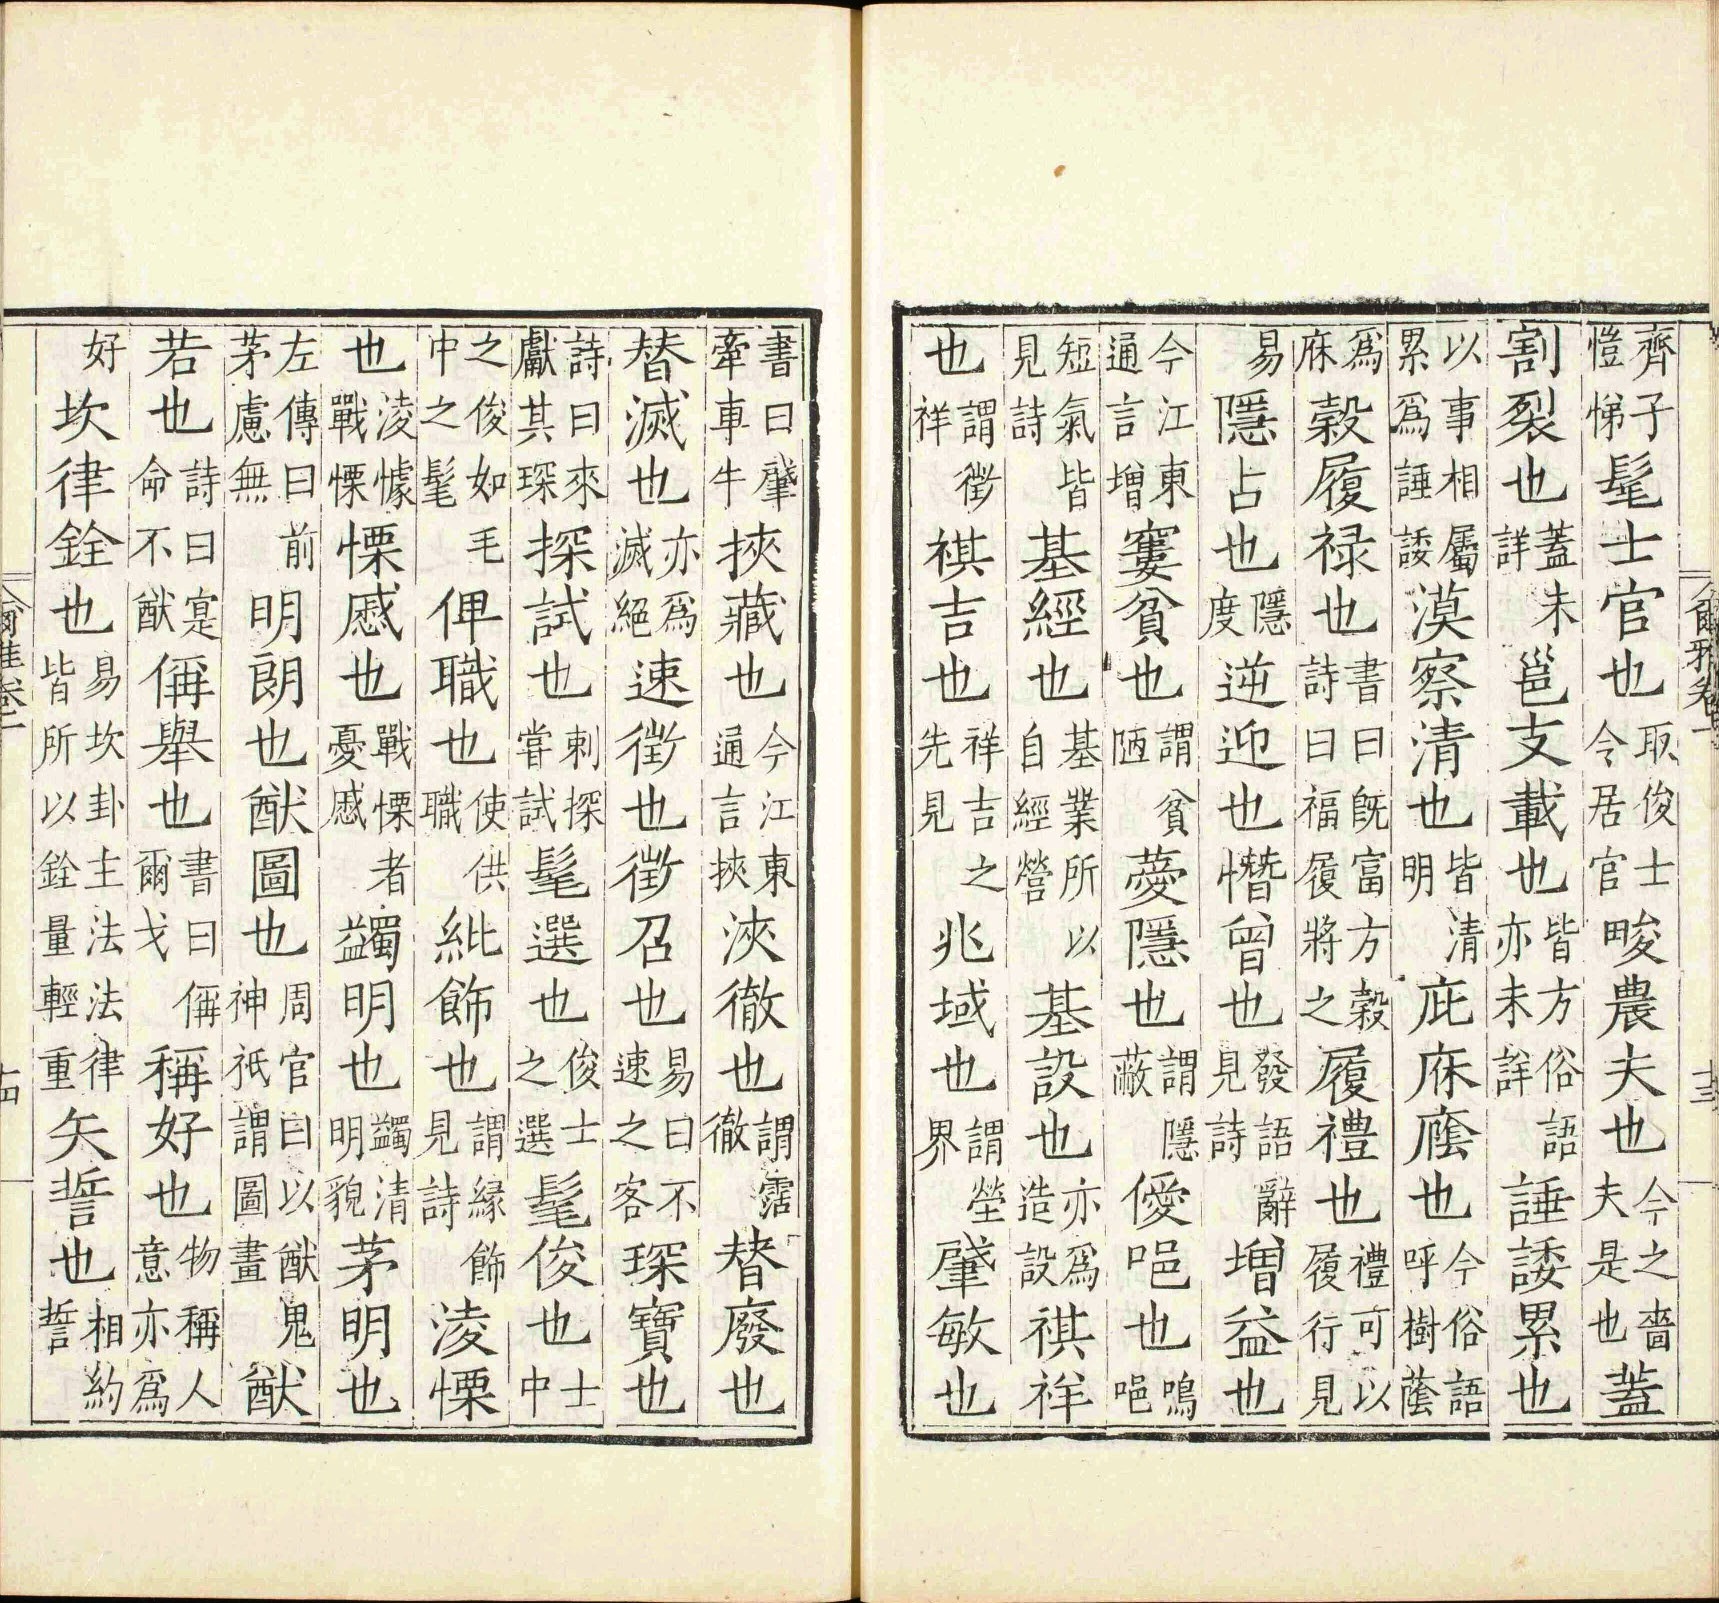 齊子愷悌髦士官也取俊士令居官畯農夫也今之嗇夫是也蓋
割裂也蓋未詳邕支載也皆方俗語亦未詳諈諉累也
以事相屬累爲諈諉漠察清也皆清明庇庥廕也今俗語呼樹蔭
爲庥穀履禄也書曰旣富方穀詩曰福履將之履禮也禮可以履行見
易隱占也隱度逆迎也憯曾也發語辭見詩增益也
今江東通言增窶貧也謂貧陋薆隱也謂隱蔽僾唈也嗚唈
短氣皆見詩基經也基業所以自經營基設也亦爲造設祺祥
也謂徵祥祺吉也祥吉之先見兆域也謂塋界肈敏也
書曰肈牽車牛挾藏也今江東通言挾浹徹也謂霑徹替廢也
替滅也亦爲滅絕速徵也徵召也易曰不速之客琛寶也
詩曰來獻其琛探試也刺探嘗試髦選也俊士之選髦俊也士中
之俊如毛中之髦俾職也使供職紕飾也謂緣飾見詩淩慄
也淩懅戰慄慄慼也戰慄者憂慼蠲明也蠲清明貌茅明也
左傳曰前茅慮無明朗也猷圖也周官曰以猷鬼神祇謂圖畫猷
若也詩曰寔命不猷偁舉也書曰偁爾戈稱好也物稱人意亦爲
好坎律銓也易坎卦主法法律皆所以銓量輕重矢誓也相約誓